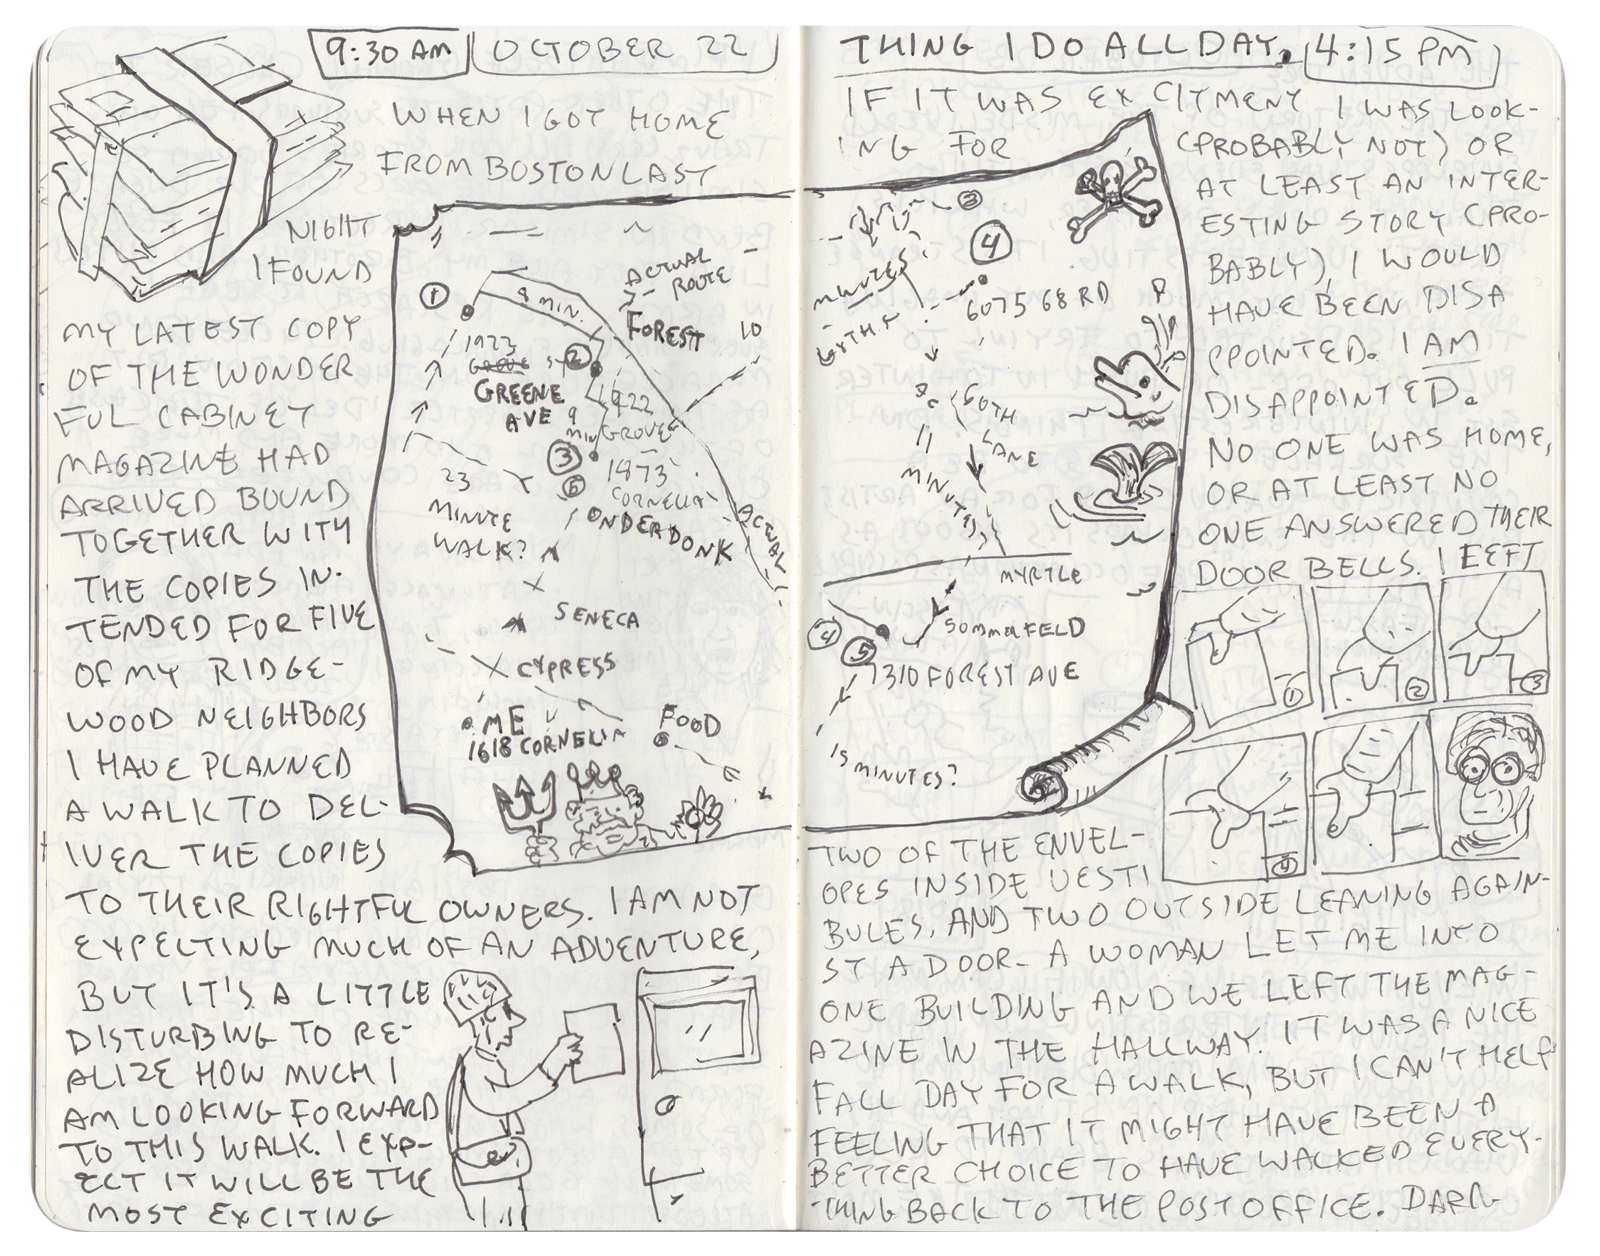 9:30 AM
OCTOBER 22
WHEN I GOT HOME
FROM BOSTON LAST
NIGHT
I FOUND
MY LATEST COPY
OF THE WONDER
FUL CABINET
MAGAZINE HAD
ARRIVED BOUND
TOGETHER WITH
THE COPIES IN-
TENDED FOR FIVE
OF MY RIDGE-
WOOD NEIGHBORS
I HAVE PLANNED
A WALK TO DEL-
IVER THE COPIES
TO THEIR RIGHTFUL OWNERS. I AM NOT
EXPECTING MUCH OF AN ADVENTURE,
BUT IT'S A LITTLE
DISTURBING TO RE-
ALIZE HOW MUCH I
AM LOOKING FORWARD
TO THIS WALK. I EXP-
ECT IT WILL BE THE
MOST EXCITING
1
8 MIN.
ACTUAL
ROUTE
FOREST
10
1923
GROVE
GREENE
AVE
2
1922
GROVE
9
MIN
3
6
1873
CORNELIA
ONDERDONK
23
MINUTE
WALK?
ACTUAL
SENECA
CYPRESS
ME
1618 CORNELIA
FOOD
THING I DO ALL DAY.
4:15 PM
IF IT WAS EXCITMENT I WAS LOOK-
ING FOR (PROBABLY NOT) OR
AT LEAST AN INTER-
ESTING STORY (PRO-
BABLY), I WOULD
HAVE BEEN DISA
PPOINTED. I AM
DISAPPOINTED.
NO ONE WAS HOME,
OR AT LEAST NO
ONE ANSWERED THEIR
DOOR BELLS. I LEFT
3
4
6075 68 RD
MINUTES
60TH
LANE
11
MINUTES
MYRTLE
SOMMERFELD
4
5
7310 FOREST AVE
15 MINUTES?
1
2
3
4
TWO OF THE ENVEL-
OPES INSIDE VESTI
BULES, AND TWO OUTSIDE LEANING AGAIN-
ST A DOOR- A WOMAN LET ME INTO
ONE BUILDING AND WE LEFT THE MAG-
AZINE IN THE HALLWAY. IT WAS A NICE
FALL DAY FOR A WALK, BUT I CAN'T HELP
FEELING THAT IT MIGHT HAVE BEEN A
BETTER CHOICE TO HAVE WALKED EVERY-
THING BACK TO THE POST OFFICE. DARN